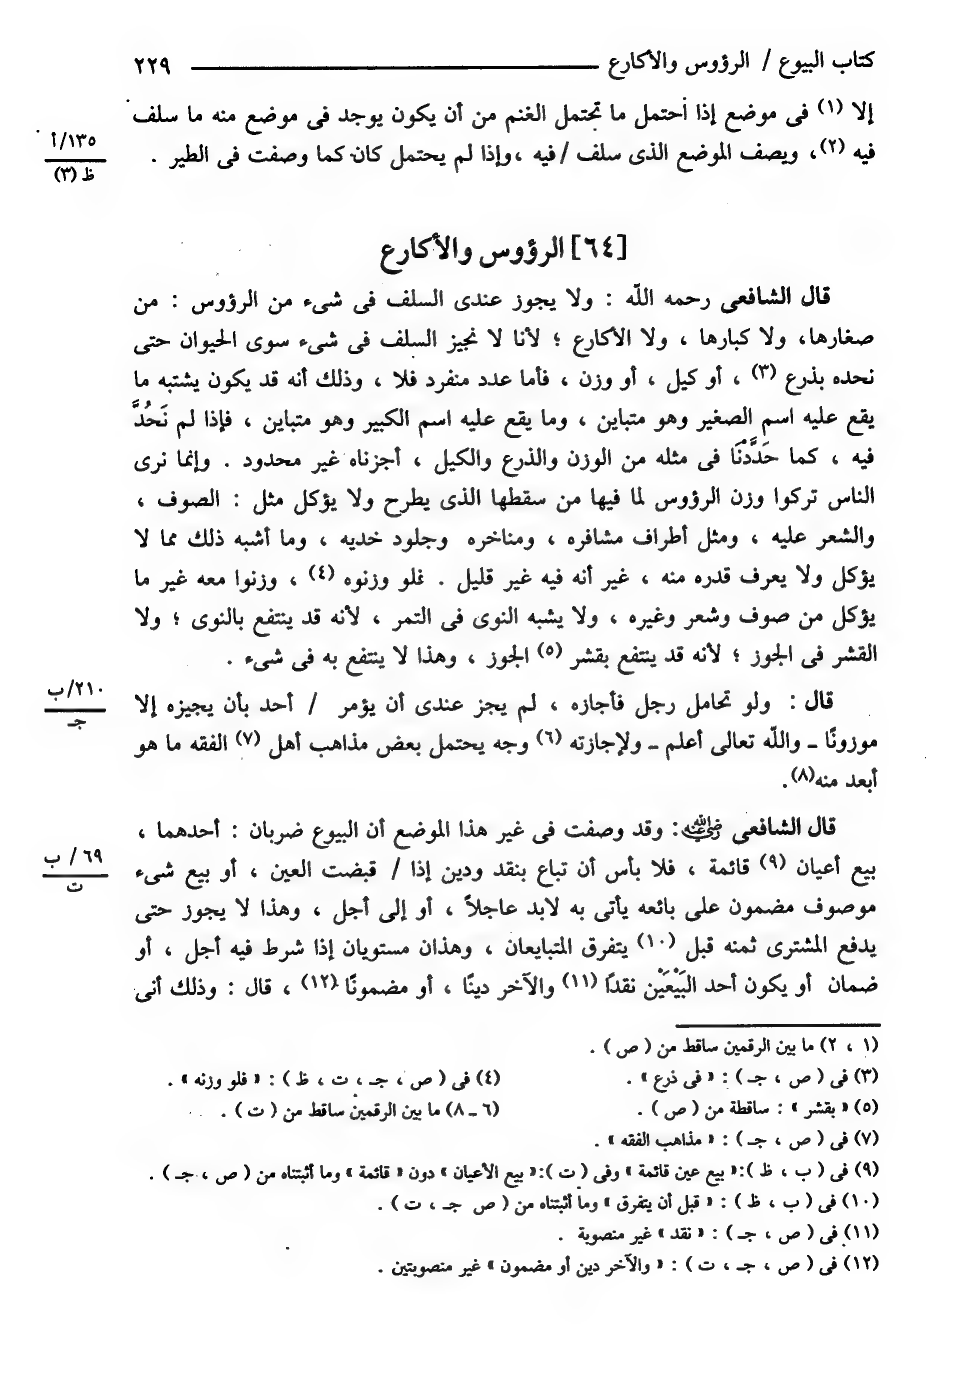 كتاب البيوع / الرؤوس والأكارع ـــــــــــ ٢٢٩
إلا (١) فى موضع إذا احتمل ما تحتمل الغنم من أن يكون يوجد فى موضع منه ما سلف
فيه (٢)، ويصف الموضع الذى سلف / فيه ، وإذا لم يحتمل كان كما وصفت فى الطير .
١٣٥/أ
ظ (٣)
[٦٤] الرؤوس والأكارع
قال الشافعى رحمه الله : ولا يجوز عندى السلف فى شىء من الرؤوس : من
صغارها، ولا كبارها ، ولا الأكارع ؛ لأنا لا نجيز السلف فى شىء سوى الحيوان حتى
نحده بذرع (٣) ، أو كيل ، أو وزن ، فأما عدد منفرد فلا ، وذلك أنه قد يكون يشتبه ما
يقع عليه اسم الصغير وهو متباين ، وما يقع عليه اسم الكبير وهو متباين ، فإذا لم نَحُدَّ
فيه ، كما حَدَّدْنَا فى مثله من الوزن والذرع والكيل ، أجزناه غير محدود . وإنما نرى
الناس تركوا وزن الرؤوس لما فيها من سقطها الذى يطرح ولا يؤكل مثل : الصوف ،
والشعر عليه ، ومثل أطراف مشافره ، ومناخره وجلود خديه ، وما أشبه ذلك مما لا
يؤكل ولا يعرف قدره منه ، غير أنه فيه غير قليل . فلو وزنوه (٤) ، وزنوا معه غير ما
يؤكل من صوف وشعر وغيره ، ولا يشبه النوى فى التمر ، لأنه قد ينتفع بالنوى ؛ ولا
القشر فى الجوز ؛ لأنه قد ينتفع بقشر (٥) الجوز ، وهذا لا ينتفع به فى شىء .
قال : ولو تحامل رجل فأجازه ، لم يجز عندى أن يؤمر / أحد بأن يجيزه إلا
٢١٠/ب
جـ
موزونًا ـ والله تعالى أعلم ـ ولإجازته (٦) وجه يحتمل بعض مذاهب أهل (٧) الفقه ما هو
أبعد منه(٨).
قال الشافعى رضي الله عنه : وقد وصفت فى غير هذا الموضع أن البيوع ضربان : أحدهما ،
بيع أعيان (٩) قائمة ، فلا بأس أن تباع بنقد ودين إذا / قبضت العين ، أو بيع شىء
٦٩/ ب
ت
موصوف مضمون على بائعه يأتى به لابد عاجلاً ، أو إلى أجل ، وهذا لا يجوز حتى
يدفع المشترى ثمنه قبل (١٠) يتفرق المتبايعان ، وهذان مستويان إذا شرط فيه أجل ، أو
ضمان أو يكون أحد البَيْعَيْن نقدًا (١١) والآخر دينًا ، أو مضمونًا (١٢) ، قال : وذلك أنى
(١ ، ٢) ما بين الرقمين ساقط من ( ص ) .
(٣) فى ( ص ، جـ ) : « فى ذرع » . (٤) فى ( ص ، جـ ، ت ، ظ ) : « فلو وزنه » .
(٥) « بقشر » : ساقطة من ( ص ) . (٦ ـ ٨) ما بين الرقمين ساقط من ( ت ) .
(٧) فى ( ص ، جـ ) : « مذاهب الفقه » .
(٩) فى ( ب ، ظ ):« بيع عين قائمة » وفى ( ت ):« بيع الأعيان » دون « قائمة » وما أثبتناه من ( ص ، جـ ) .
(١٠) فى ( ب ، ظ ) : « قبل أن يتفرق » وما أثبتناه من ( ص جـ ، ت ) .
(١١) فى ( ص ، جـ ) : « نقد » غير منصوبة .
(١٢) فى ( ص ، جـ ، ت ) : « والآخر دين أو مضمون » غير منصوبتين .